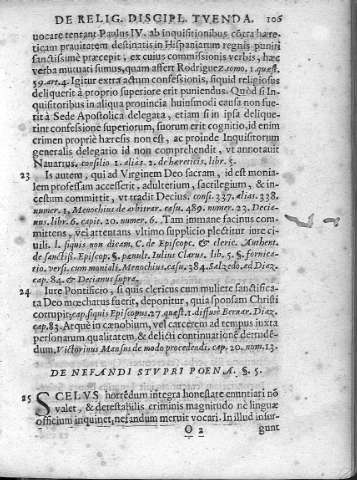 DE RELIG. DISCIPL. TVENDA. 106
uocare tentant Paulus IV. ab inquisitionibus cõtra hære-
ticam prauitatem destinatis in Hispaniarum regnis puniri
sanctissimè præcepit, ex cuius commissionis verbis, hæc
verba mutuati sumus, quam affert Rodriguez tomo, 1. quæst.
59. art. 4. Igitur extra actum confessionis, siquid religiosus
deliquerit à proprio superiore erit puniendus. Quòd si In-
quisitoribus in aliqua prouincia huiusmodi causa non fue-
rit à Sede Apostolica delegata, etiam si in ipsa delique-
rint confessione superiorum, suorum erit cognitio, id enim
crimen propriè hæresis non est, ac proinde Inquisitorum
generalis delegatio id non comprehendit, vt annotauit
Nauarrus, consilio 1. alias. 2. de hæreticis, libr. 5.
23 Is autem, qui ad Virginem Deo sacram, id est monia-
lem professam accesserit, adulterium, sacrilegium, & in-
cestum committit, vt tradit Decius. cons. 337. aliàs. 338.
numer. 1. Menochius de arbitrar. casu. 489. numer. 23. Decia-
nus. libr. 6. capit. 20. numer. 6. Tam immane facinus com-
mittens, vel attentans vltimo supplicio plectitur iure ci-
uili. l. siquis non dicam. C. de Episcop. & cleric. Authent.
de sanctiss. Episcop. §. penult. Iulius Clarus. lib. 5. §. fornica-
tio. versi. cum moniali. Menochius. casu. 384. Salzedo, ad Diaz.
cap. 84. & Decianus supra.
24 Iure Pontificio, si quis clericus cum muliere sanctifica-
ta Deo mœchatus fuerit, deponitur, quia sponsam Christi
corrupit, cap. siquis Episcopus. 27. quæst. 1. diffuse Bernar. Diaz.
cap. 83. Atque in cœnobium, vel carcerem ad tempus iuxta
personarum qualitatem, & delicti continuatione detrudē-
dum, Victorinus Mansus de modo procedendi. cap. 20. num. 13.
DE NEFANDI STVPRI POENA. §. 5.
25 SCELVS horrēdum integra honestate enuntiari nō
valet, & detestabilis criminis magnitudo nè linguæ
officium inquinet, nefandum meruit vocari. In illud insur-
O 2 gunt